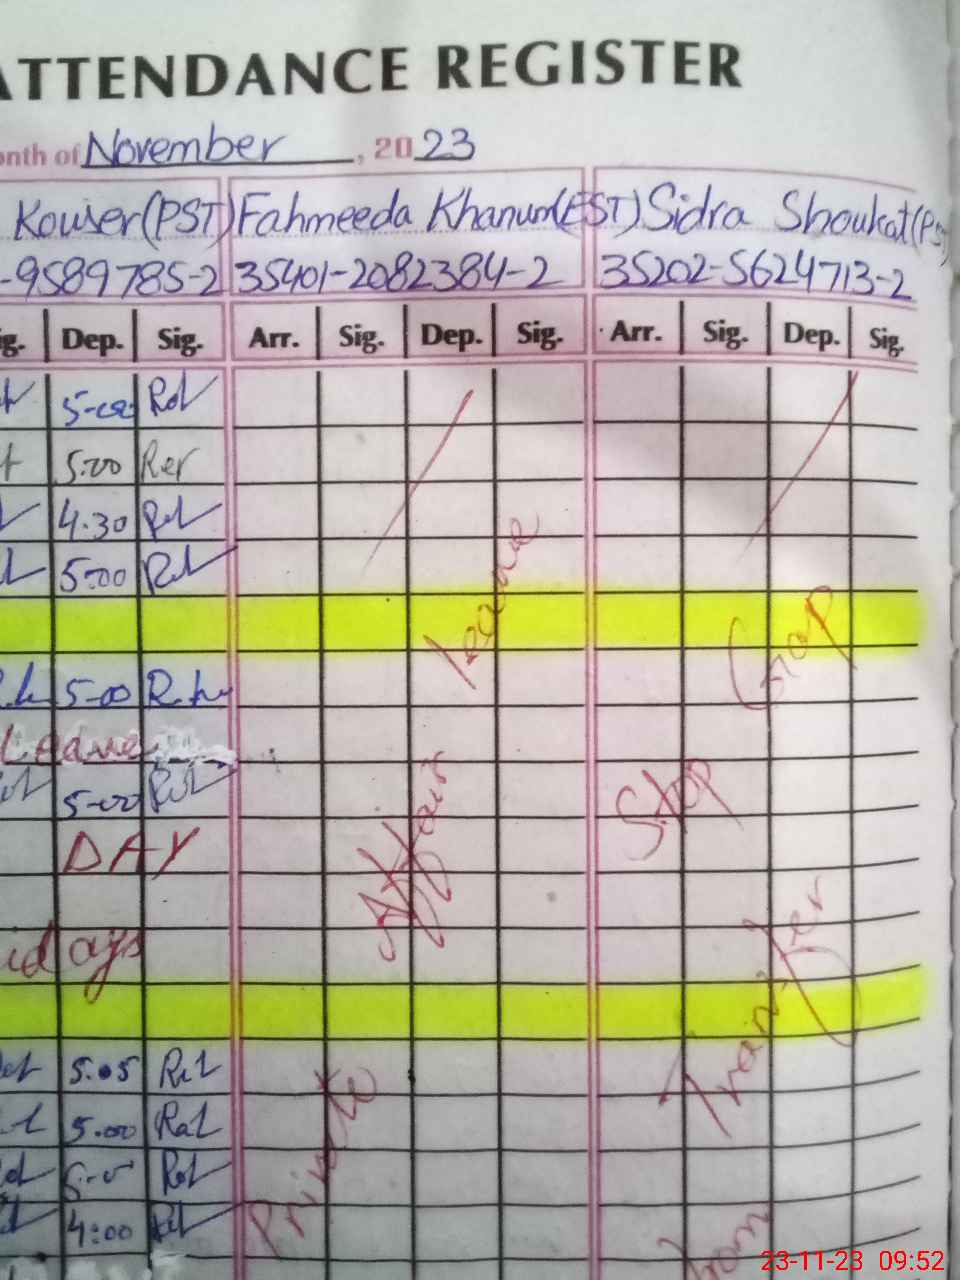 ATTENDANCE REGISTER
onth of November, 2023
Kouser(PST) Fahmeeda Khanum(EST) Sidra Shoukat(PS
-9589785-2 35401-2082384-2 35202-5624713-2
g. Dep. Sig. Arr. Sig. Dep. Sig. Arr. Sig. Dep. Sig.
5-00
5.00
4.30
5.00
5-00
Leave
5-00
DAY
idays
5.05
5.00
4:00
Private Affair Leave
Stop
Gap
Transfer
23-11-23 09:52